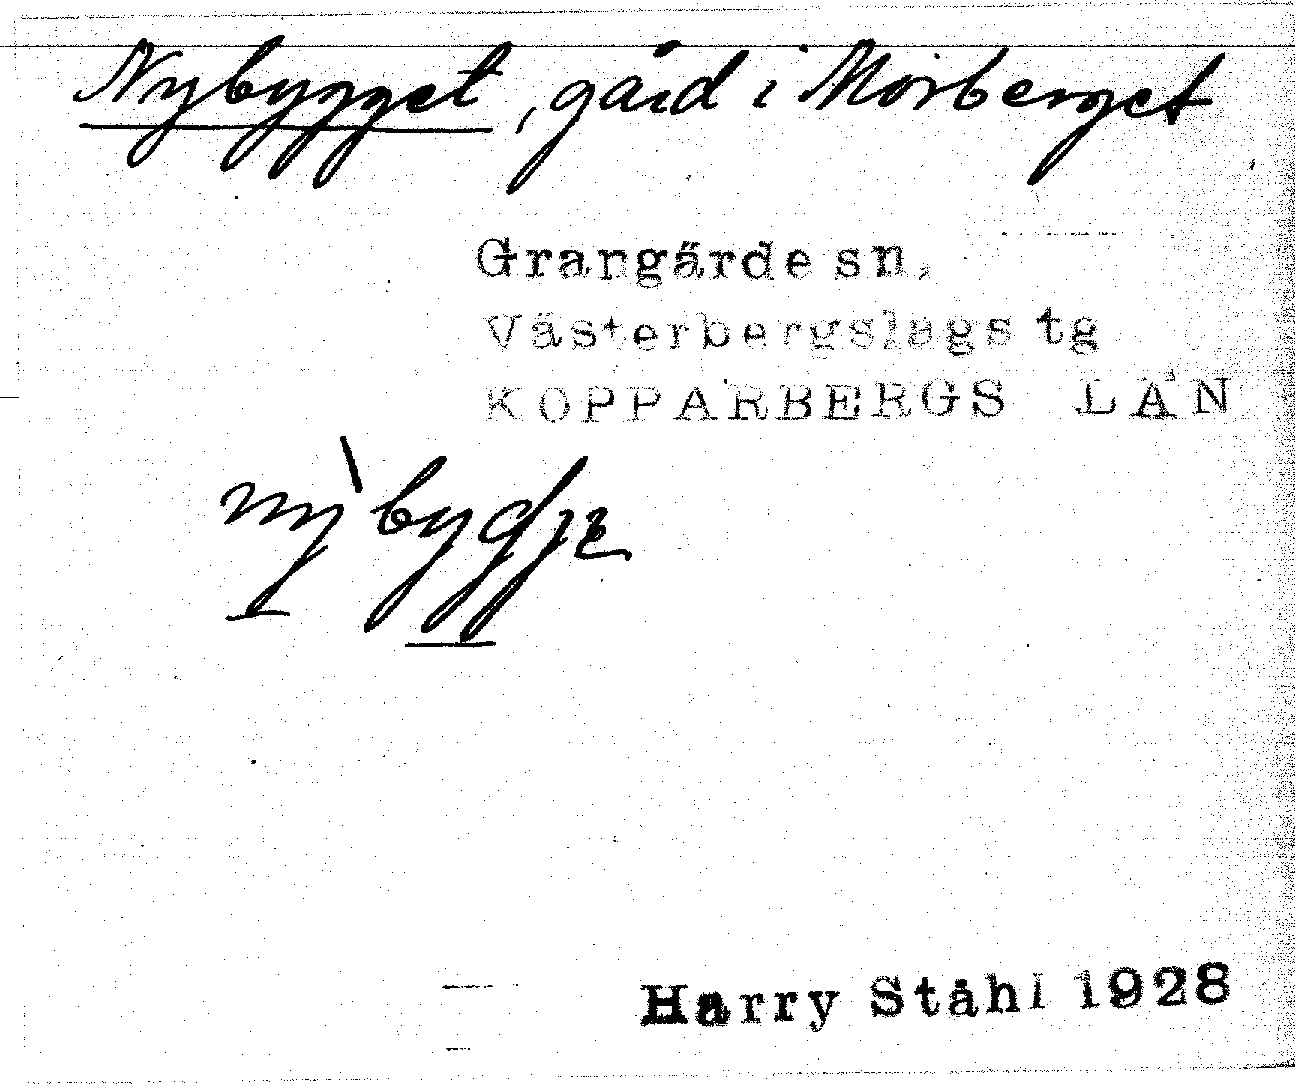 Nybygget, gård i Morberget
Grangärde sn,
Västerbergslags tg
KOPPARBERGS LÄN
ny`bygdjɛ
Harry Ståhl 1928